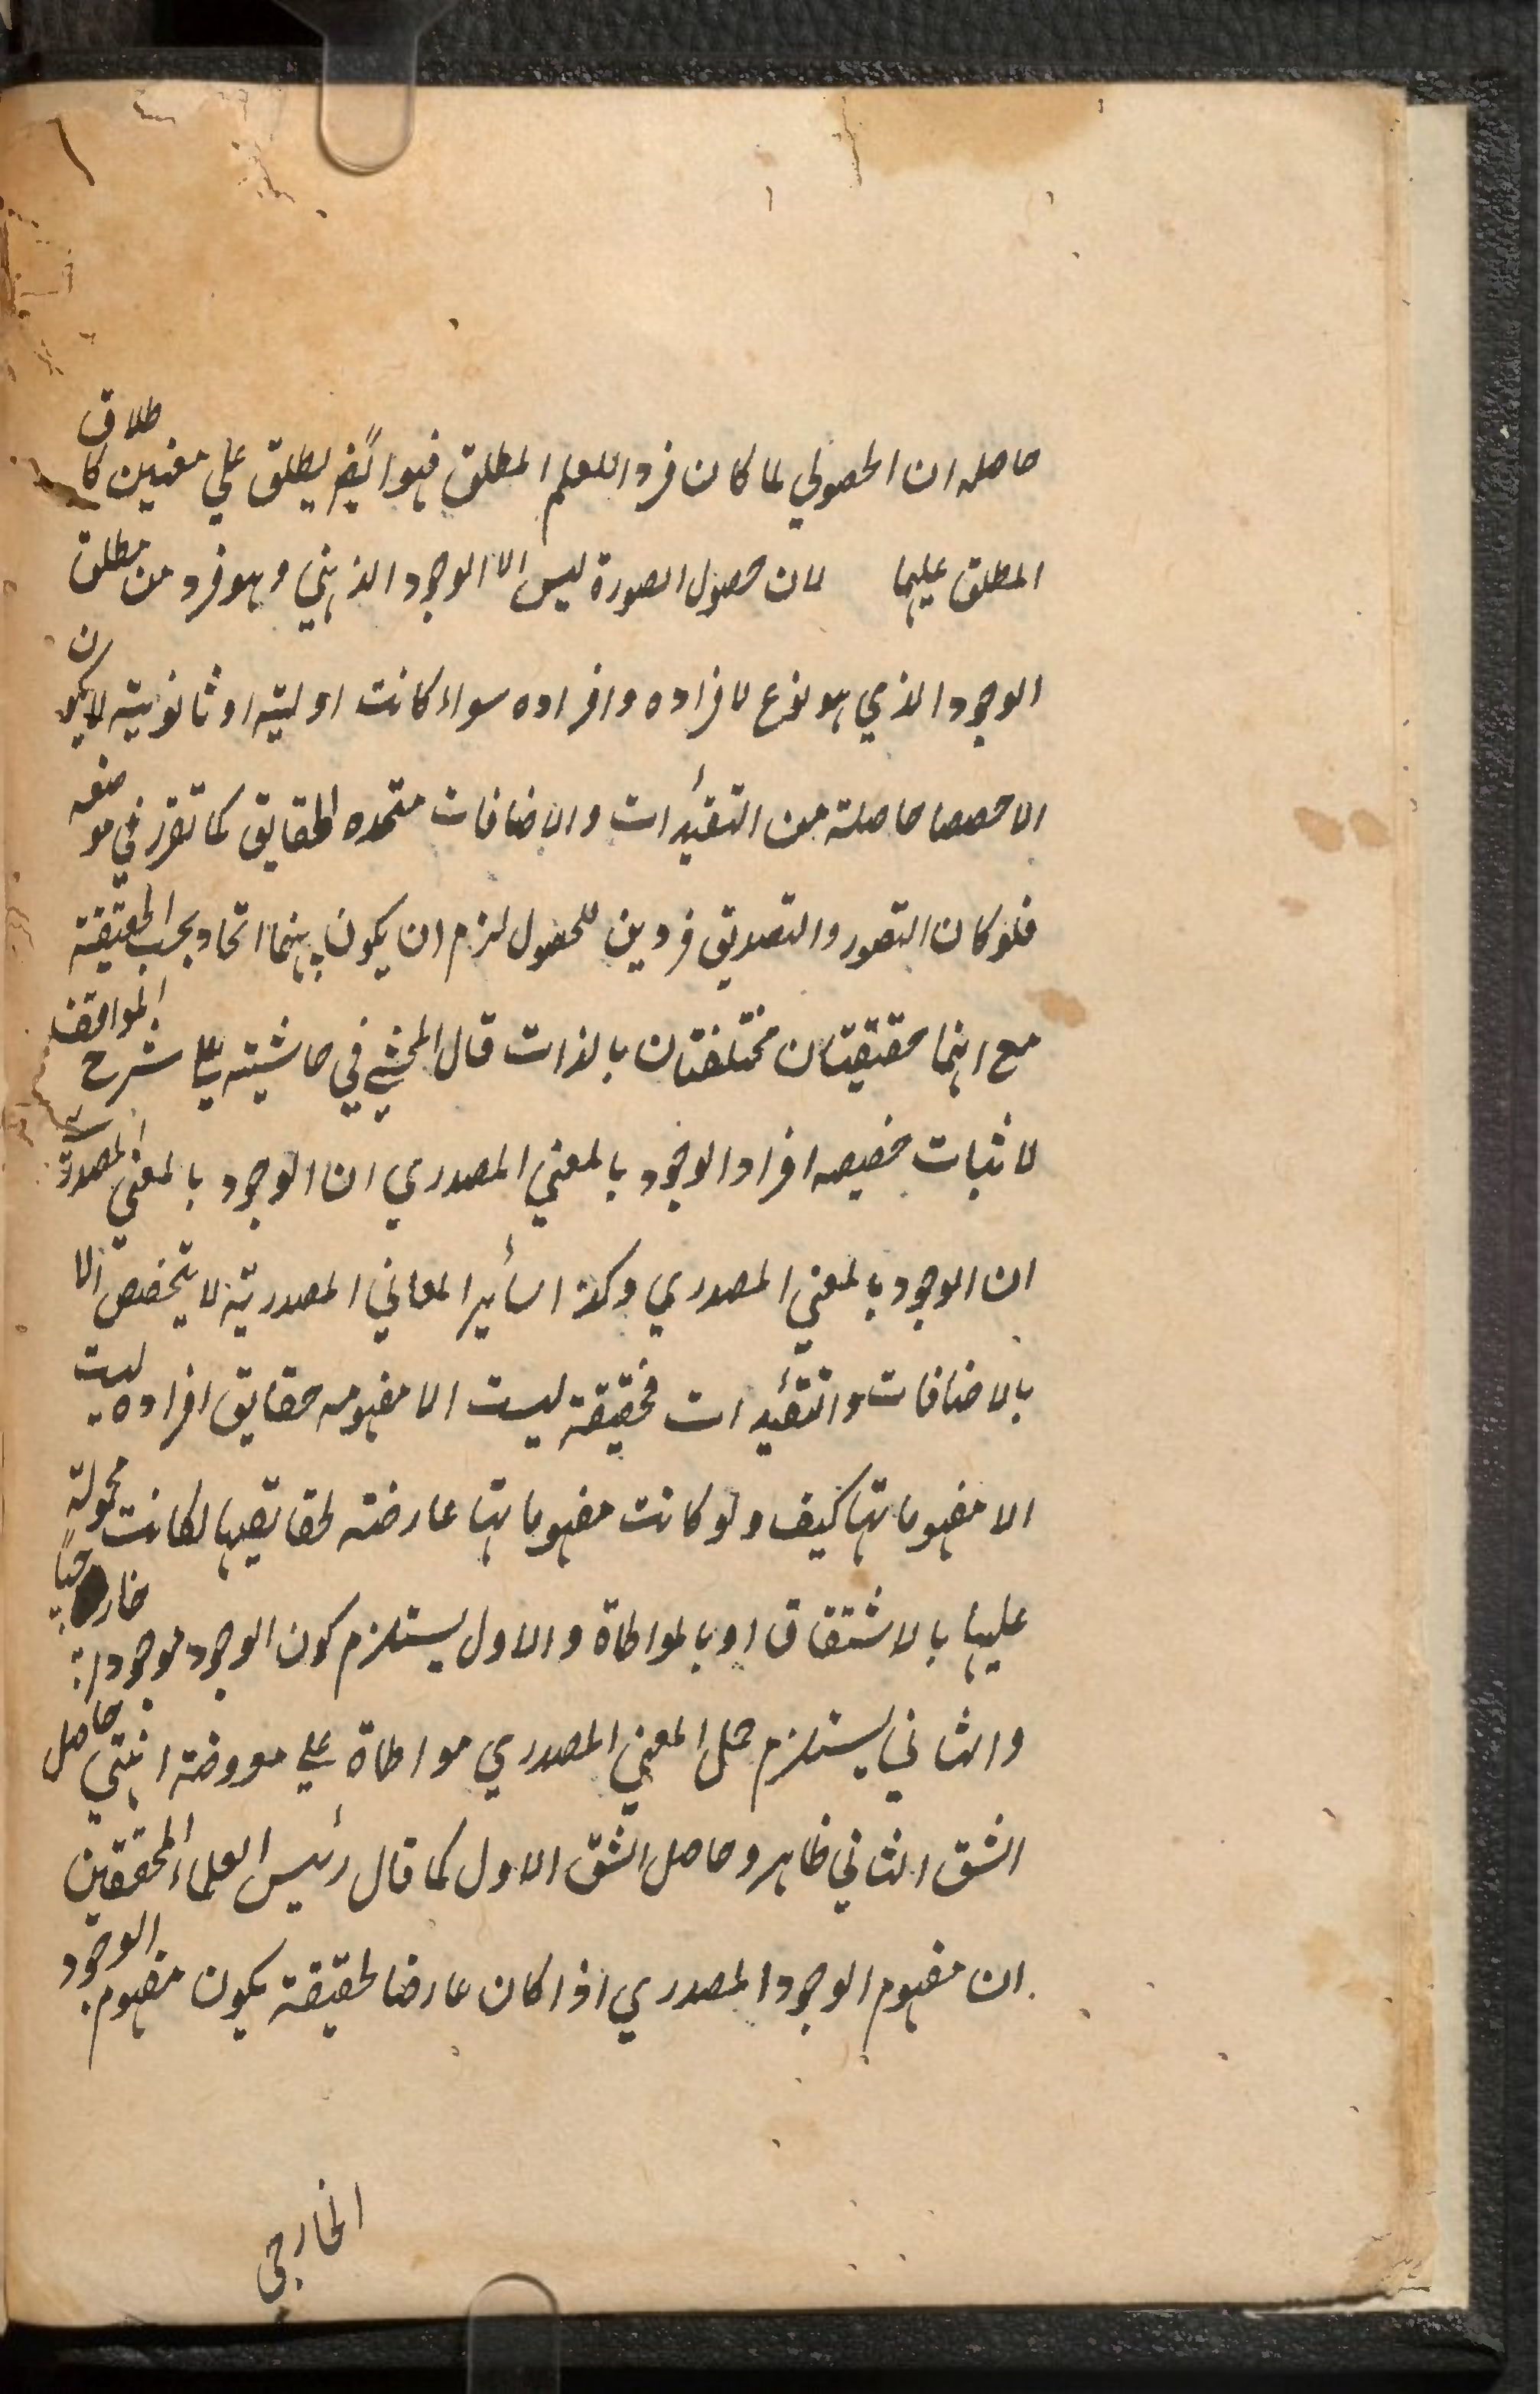 حاصله ان الحصولي لما كان فردا للعلم المطلق فهو ايضً يطلق علي معنيين كاطلاق
المطلق عليهما لان حصول الصورة ليس الا الوجود الذهني وهو فرد من مطلق
الوجود الذي هو نوع لافراده وافراده سواء كانت اولية او ثانوية لا يكون
الا حصصا حاصلة من التقيدات والاضافات متحده الحقايق كما تقرر في موضعه
فلو كان التصور والتصديق فردين للحصول لزم ان يكون بينهما اتحاد بحسب الحقيقة
مع انهما حقيقتان مختلفتان بالذات قال المحشي في حاشيته علي شرح المواقف
لاثبات حصيصه افراد الوجود بالمعني المصدري ان الوجود بالمعني المصدرى
ان الوجود بالمعني المصدري وكذا سأير المعاني المصدرية لا يتخصص الا
بالاضافات والتقيدات فحقيقة ليست الا مفهومه حقايق افراده ليست
الا مفهوماتها كيف ولو كانت مفهوماتها عارضة لحقايقها لكانت محمولة
عليها بالاشتقاق او بالمواطاة والاول يستلزم كون الوجود موجودا خارجياً
والثاني يستلزم حمل المعني المصدري مواطاة علي معروضه انتهي حاصل
الشق الثاني ظاهر وحاصل الشق الاول كما قال رئيس العلماء المحققين
ان مفهوم الوجود المصدري اذا كان عارضا لحقيقة يكون مفهوم الوجود
الخارجى